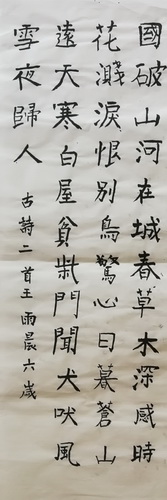 國破山河在城春草木深感時
花濺淚恨別鳥驚心日暮蒼山
遠天寒白屋貧柴門聞犬吠風
雪夜歸人
古詩二首王雨晨六歲